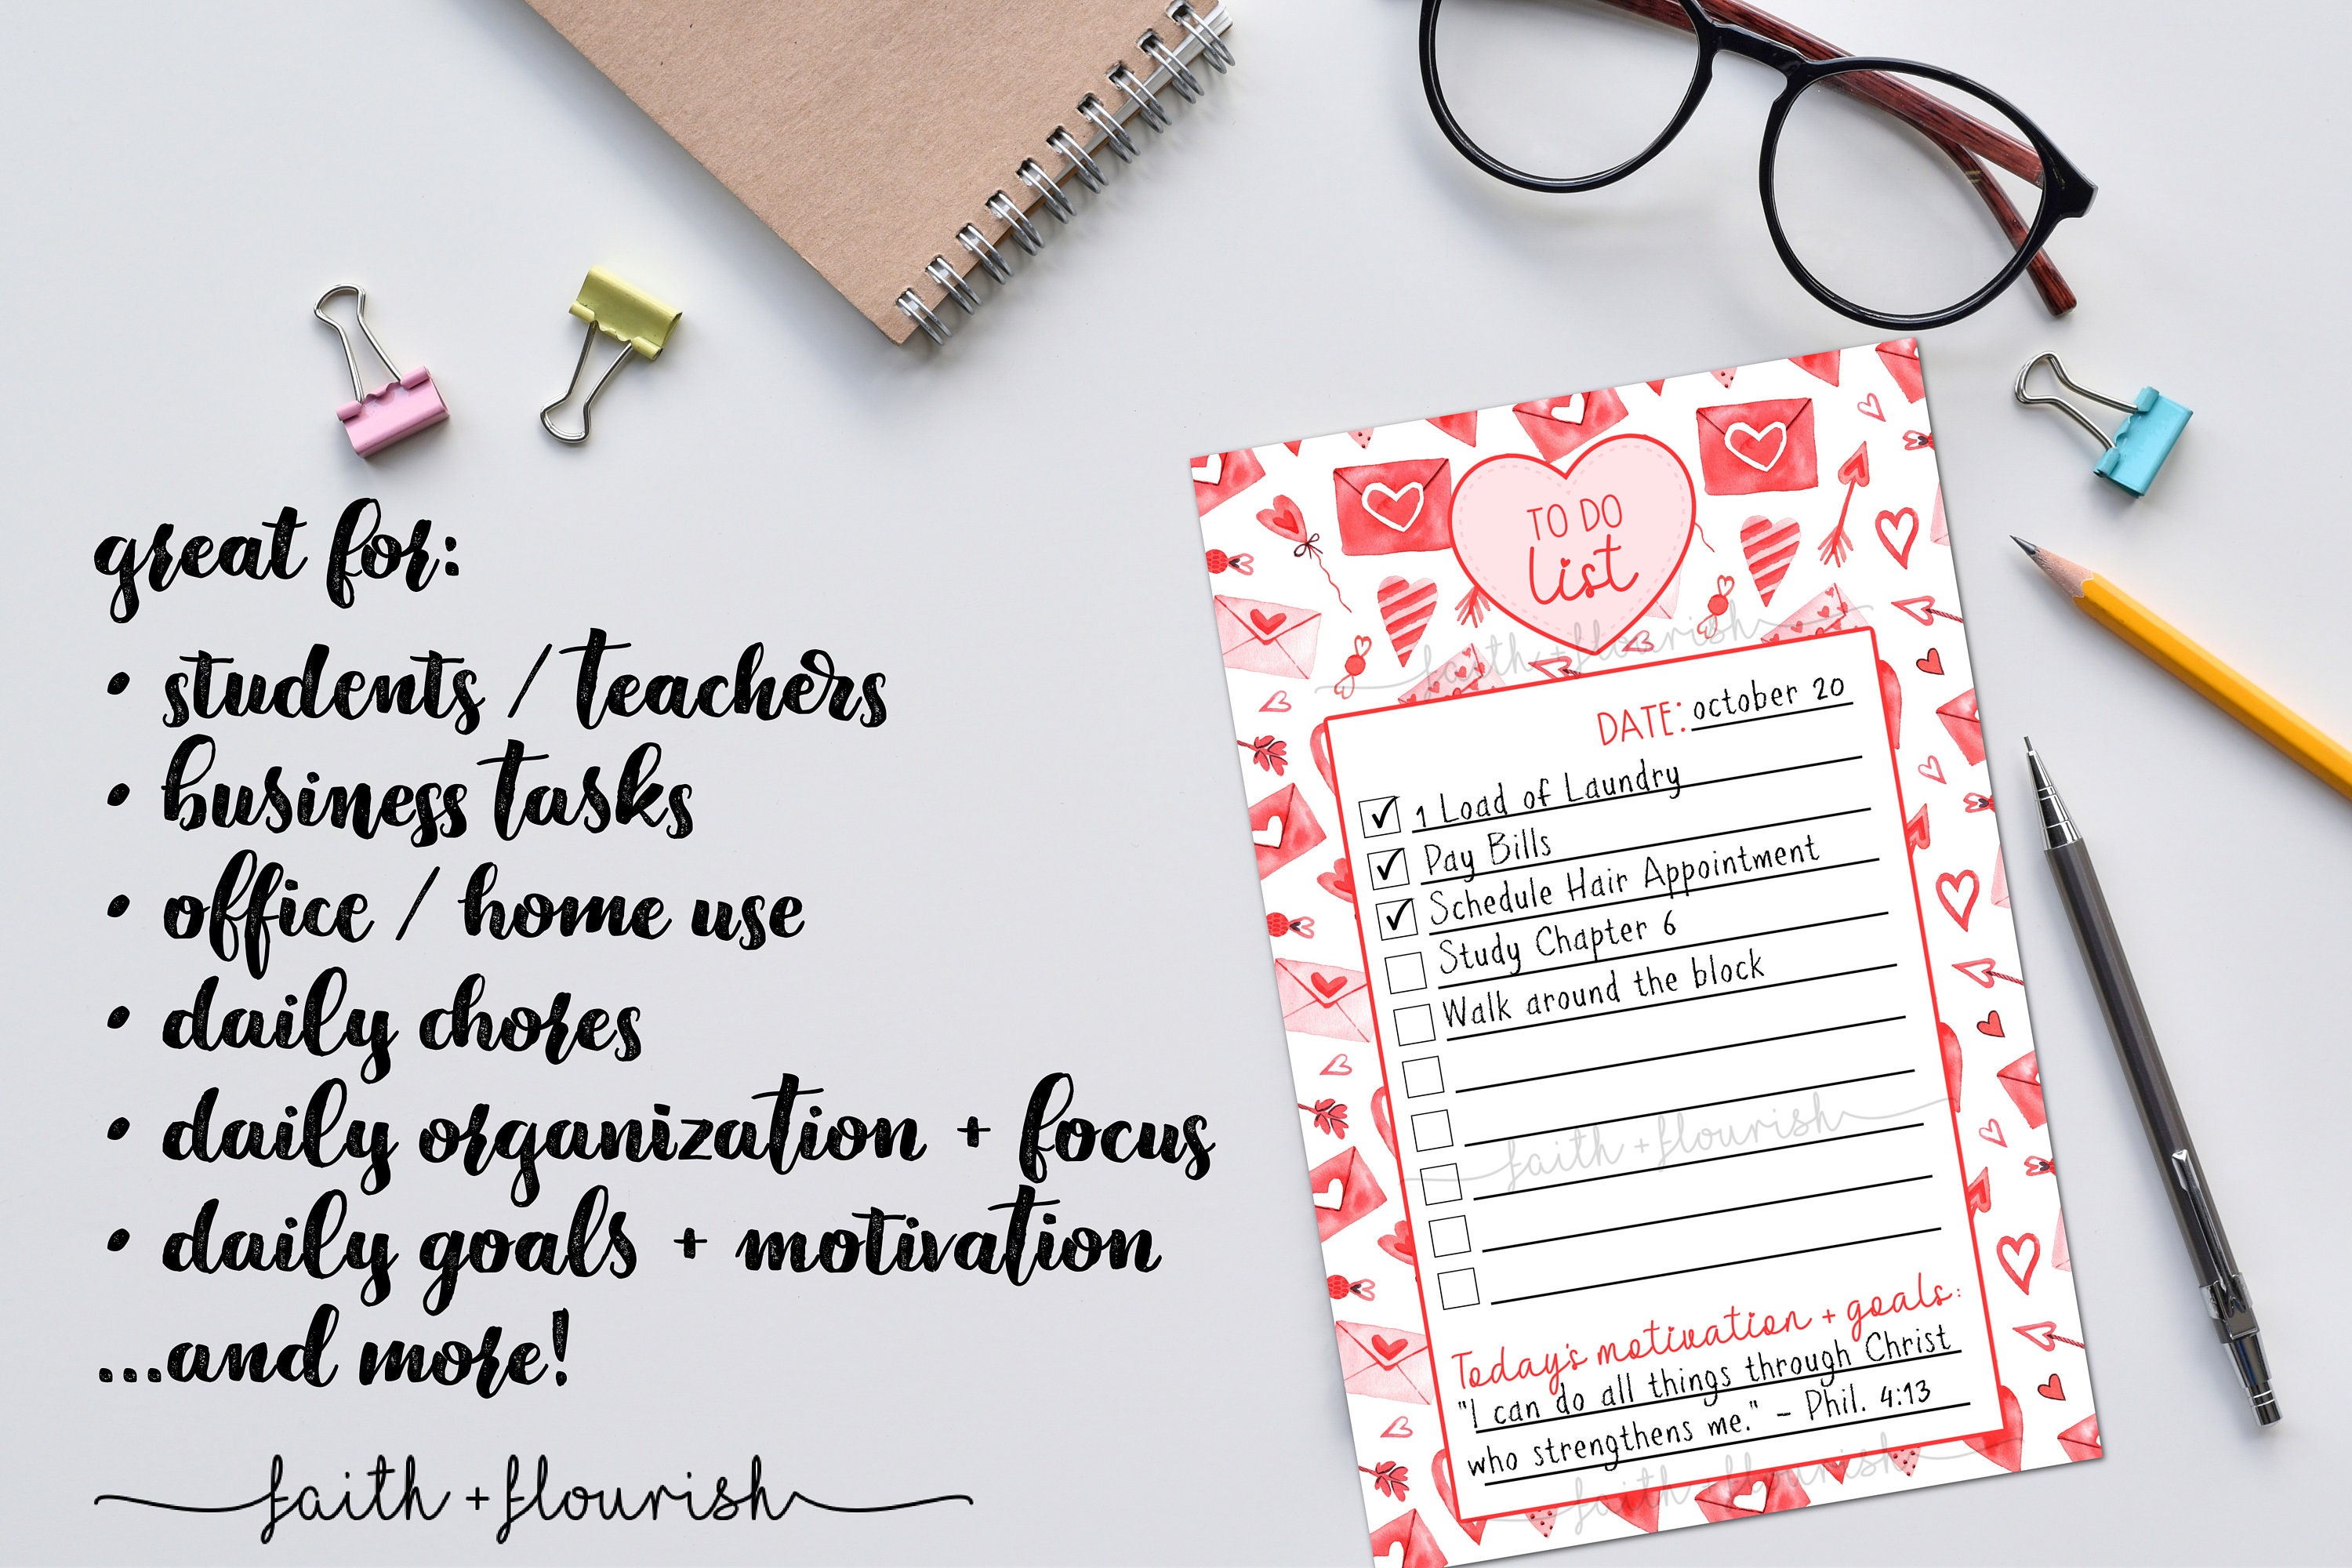 great for:
• students / teachers
• business tasks
• office / home use
• daily chores
• daily organization + focus
• daily goals + motivation
...and more!
faith + flourish
TO DO
list
faith + flourish
DATE: october 20
1 Load of Laundry
Pay Bills
Schedule Hair Appointment
Study Chapter 6
Walk around the block
faith + flourish
Today's motivation + goals:
"I can do all things through Christ
who strengthens me." - Phil. 4:13
faith + flourish